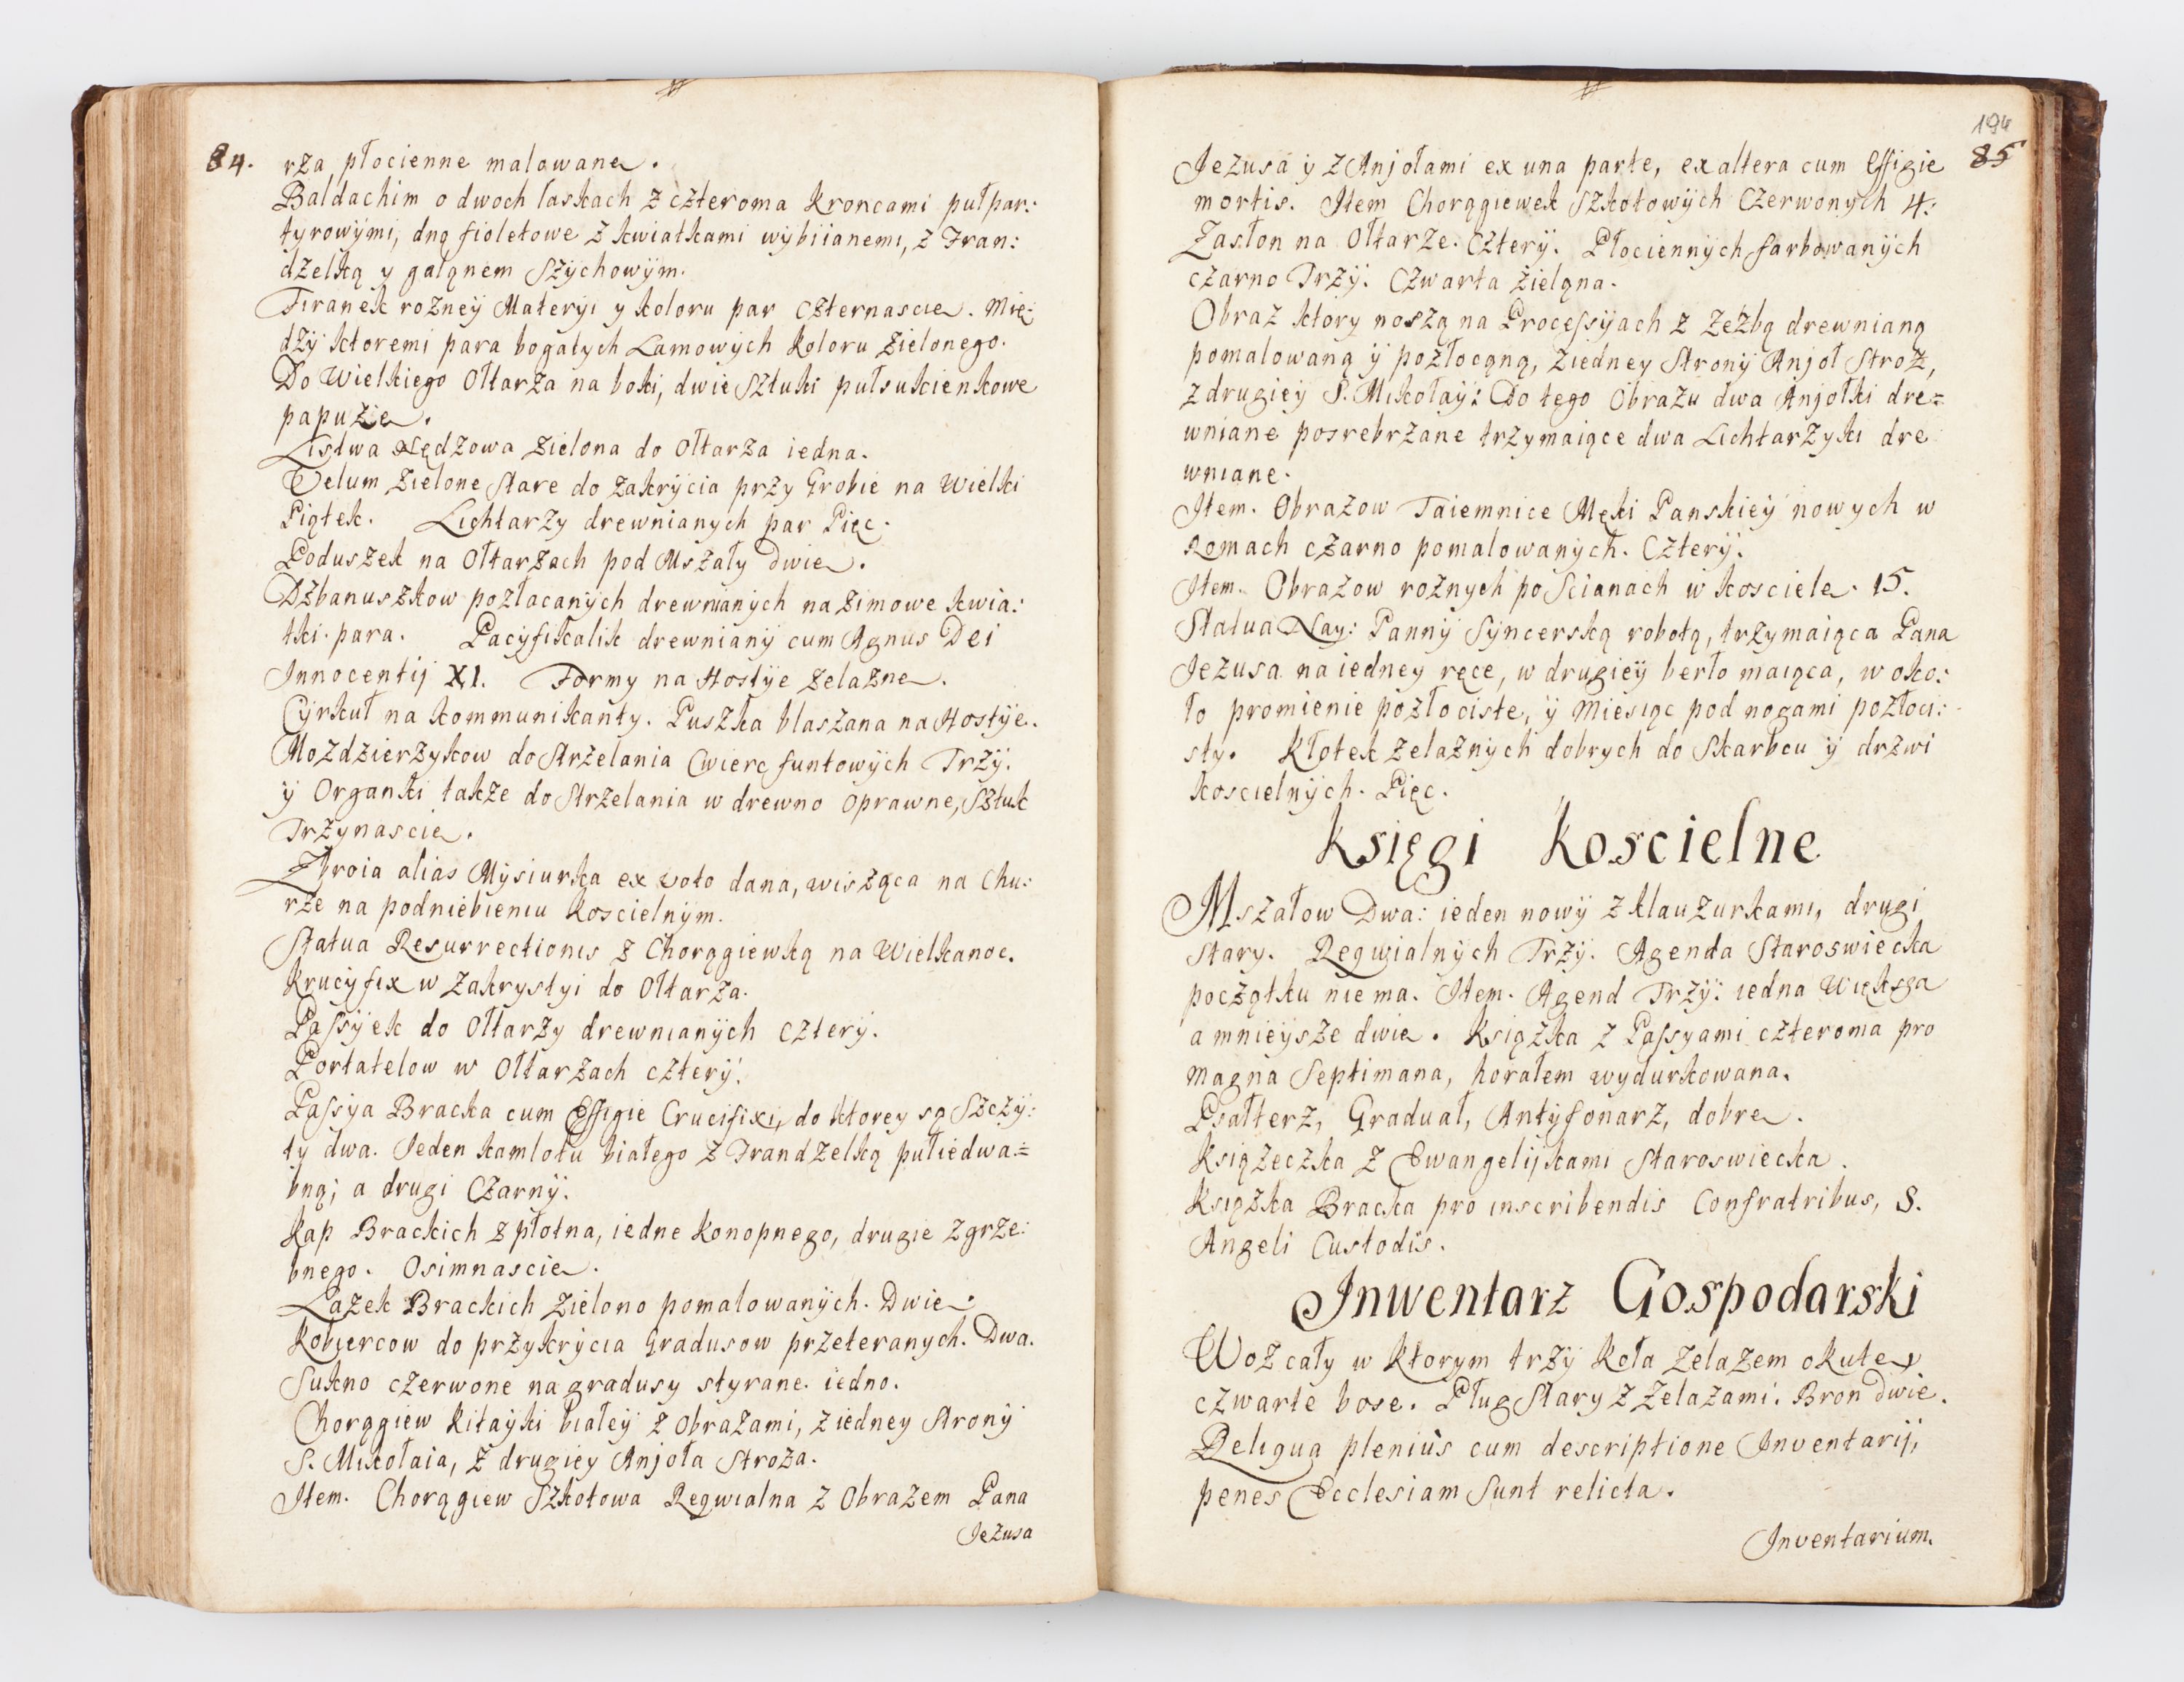 84. rza płocienne malowane.
Baldachim o dwoch laskach z czteroma kroncami pułpar:
tyrowÿmi, dną fioletowe z kwiatkami wÿbiianemi, z Fran:
dzelką y galąnem Szÿchowÿm.
Firanek roznеÿ Materÿi y koloru par czternascie. Mię:
dzÿ ktoremi para bogatych Lamowÿch koloru zielonego.
Do Wielkiego Ołtarza na boki, dwie Sztuki pułsukienkowe
papuzie.
Listwa Nędzowa zielona do Ołtarza iedna.
Velum zielone Stare do zakrÿcia przy Grobie na Wielki
Piątek. Lichtarzy drewnianych par Pięc.
Poduszek na Ołtarzach pod Mszały Dwie.
Dzbanuszkow pozłacanÿch drewnianÿch na zimowe kwia:
tki. para. Pacÿfikalik drewnianÿ cum Agnus Dei
Innocentij XI. Formy na Hostÿe zelazne.
Cÿrkuł na kommunikanty. Puszka blaszana na Hostÿe.
Mozdzierzykow do Strzelania Cwierc funtowÿch Trzÿ.
ÿ Organki takze do Strzelania w drewno oprawne, Sztuk
Trzynascie.
Zbroia alias Mÿsiurka ex voto dana, wisząca na Chu:
rze na podniebieniu koscielnÿm.
Statua Resurrectionis z Chorągiewką na Wielkanoc.
Krucÿfix w zakrystyi do Ołtarza.
Passÿek do Ołtarzy drewnianÿch czterÿ.
Portatelow w Ołtarzach czterÿ.
Passÿa Bracka cum Effigie Crucifixi, do ktorey są Szczÿ:
ty dwa. Jeden kamlotu białego z Frandzelką pułiedwa:=
bną; a drugi Czarnÿ.
Kap Brackich z płotna, iedne konopnego, drugie zgrze:
bnego. Osimnascie.
Lazek Brackich zielono pomalowanÿch. Dwie.
Kobiercow do przykrÿcia Gradusow przeteranych. Dwa.
Sukno czerwone na gradusy styrane. iedno.
Chorągiew kitaÿki białeÿ z Obrazami, z iedney Stronÿ
S. Mikołaia, z drugieÿ Anjoła Stroza.
Item. Chorągiew Szkotowa Reqwialna z Obrazem Pana
Jezusa
194
85
Jezusa ÿ z Anjołami ex una parte, ex altera cum Effigie
mortis. Item Chorągiewek Szkotowÿch Czerwonych 4:
Zasłon na Ołtarze. Czterÿ. Płociennÿch farbowanÿch
czarno Trzÿ. Czwarta zielona.
Obraz ktory noszą na Processÿach z zezbą drewnianą
pomalowaną ÿ pozłocąną, ziedney Stronÿ Anjoł Stroz,
z drugieÿ S. Mikołaÿ: Do tego Obrazu dwa Anjołki dre=
wniane posrebrzane trzymaiące dwa Lichtarzyki dre
wniane.
Item. Obrazow Taiemnice Męki Panskieÿ nowych w
Romach czarno pomalowanÿch. Czterÿ.
Item. Obrazow roznych po Scianach w kosciele. 15.
Statua Nay: Pannÿ Sÿncerską robotą, trzymaiąca Pana
Jezusa na iedney ręce, w drugieÿ berło maiąca, w oko:
ło promienie pozłociste, ÿ Miesiąc pod nogami pozłoci:
sty. Kłotek zelaznÿch dobrych do Skarbcu ÿ drzwi
koscielnÿch. Pięc.
Księgi Koscielne
Mszałow Dwa: ieden nowÿ z klauzurkami, drugi
stary. Reqwialnÿch Trzÿ. Agenda Staroswiecka
początku niema. Item. Agend Trzÿ: iedna Większa
a mnieÿsze dwie. Książka z Passyami czteroma pro
Magna Septimana, horałem wydurkowana.
Psałterz, Graduał, Antÿfonarz, dobre.
Książeczka z Ewangelijkami Staroswiecka.
Książka Bracka pro inscribendis Confratribus, S.
Angeli Custodis.
Inwentarz Gospodarski
Woz cały w ktorym trzÿ koła zelazem okute,
czwarte bose. Pług Stary z zelazami. Bron Dwie.
Reliqua plenius cum descriptione Inventarij,
penes Ecclesiam Sunt relicta.
Inventarium.